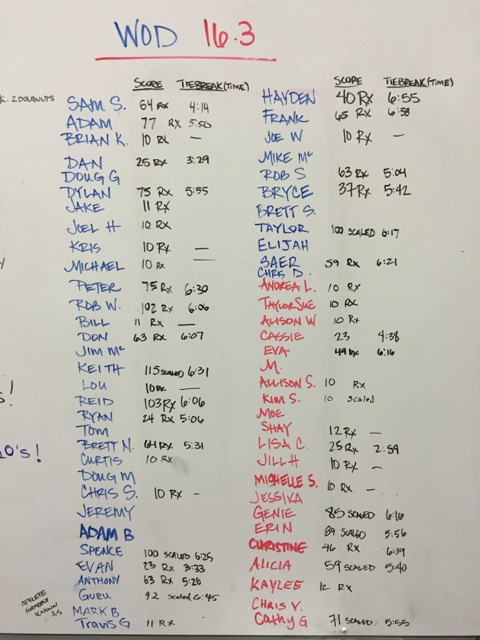 WOD 16.3
SCORE TIEBREAK (TIME)
K. 2 DOUGNUTS
SAM S. 64 RX 4:14
ADAM 77 RX 5:50
BRIAN K. 10 RX —
DAN 25 RX 3:29
DOUG G
DYLAN 75 RX 5:55
JAKE 11 RX
JOEL H 10 RX
KRIS 10 RX —
MICHAEL 10 RX —
PETER 75 RX 6:30
ROB W. 102 RX 6:06
BILL 11 RX —
DON 63 RX 6:07
JIM Mc
KEITH 115 SCALED 6:31
LOU 10 RX —
REID 103 RX 6:06
RYAN 24 RX 5:06
TOM
BRETT N. 64 RX 5:31
CURTIS 10 RX
DOUG M
CHRIS S. 10 RX —
JEREMY
ADAM B
SPENCE 100 SCALED 6:25
EVAN 23 RX 3:33
ANTHONY 63 RX 5:26
GURU 92 Scaled 6:45
ATHLETE FORMERLY KNOWN AS
MARK B
Travis G 11 RX
10's!
SCORE TIEBREAK (TIME)
HAYDEN 40 RX 6:55
FRANK 65 RX 6:58
JOE W 10 RX —
MIKE Mc
ROB S 63 RX 5:04
BRYCE 37 RX 5:42
BRETT S.
TAYLOR 100 SCALED 6:17
ELIJAH
SAER 59 RX 6:21
CHRIS D.
ANDREA L. 10 RX
TAYLOR SUE 10 RX
ALISON W 10 RX
CASSIE 23 4:38
EVA 49 RX 6:16
M.
ALLISON S. 10 RX
KIM S. 10 Scaled
MOE
SHAY 12 RX —
LISA C. 25 RX 2:59
JILL H 10 RX —
MICHELLE S. 10 RX —
JESSIKA
GENIE 85 SCALED 6:16
ERIN 89 SCALED 5:56
CHRISTINE 46 RX 6:39
ALICIA 59 SCALED 5:40
KAYLEE 12 RX
CHRIS V.
Cathy G 71 SCALED 5:55